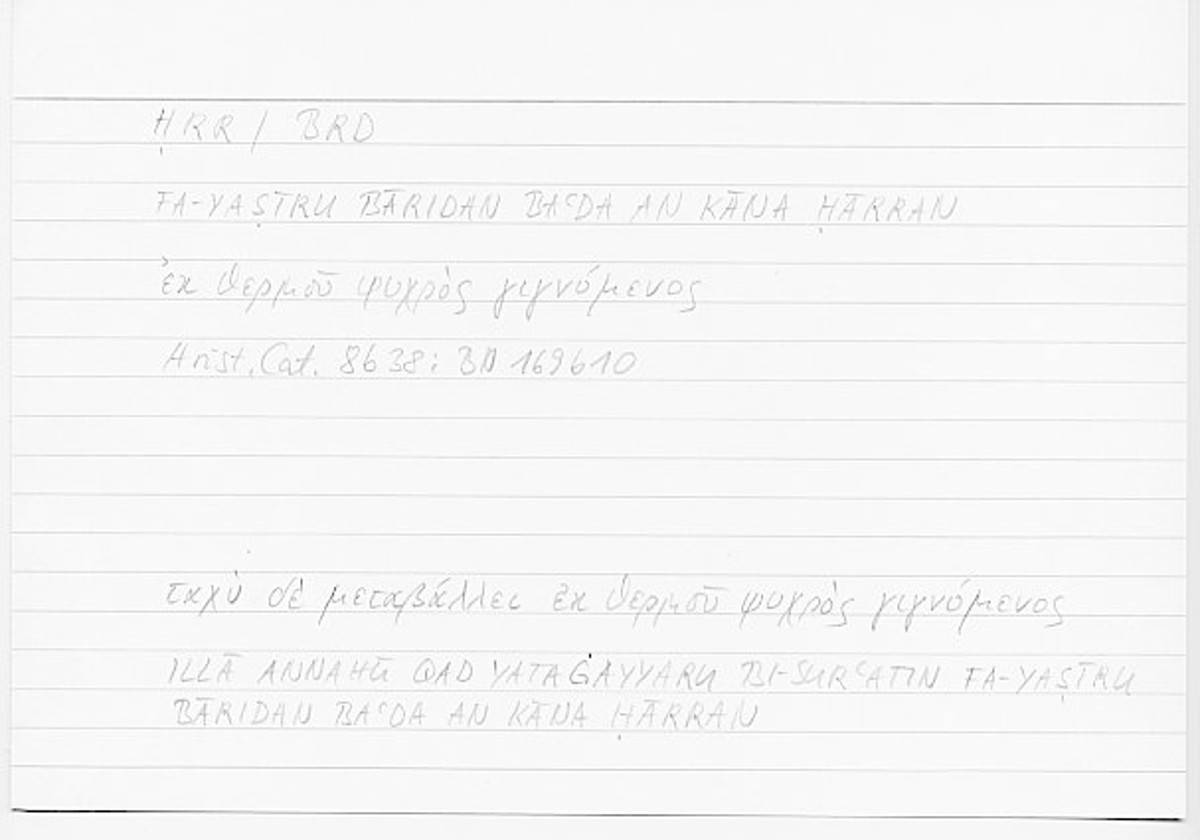 ḤRR / BRD
FA-YAṢĪRU BĀRIDAN BAʿDA AN KĀNA ḤĀRRAN
ἐκ θερμοῦ ψυχρὸς γιγνόμενος
Arist. Cat. 8b38; BD 169b10
ταχὺ δὲ μεταβάλλει ἐκ θερμοῦ ψυχρὸς γιγνόμενος
ILLĀ ANNAHŪ QAD YATAĠAYYARU BI-SURʿATIN FA-YAṢĪRU
BĀRIDAN BAʿDA AN KĀNA ḤĀRRAN